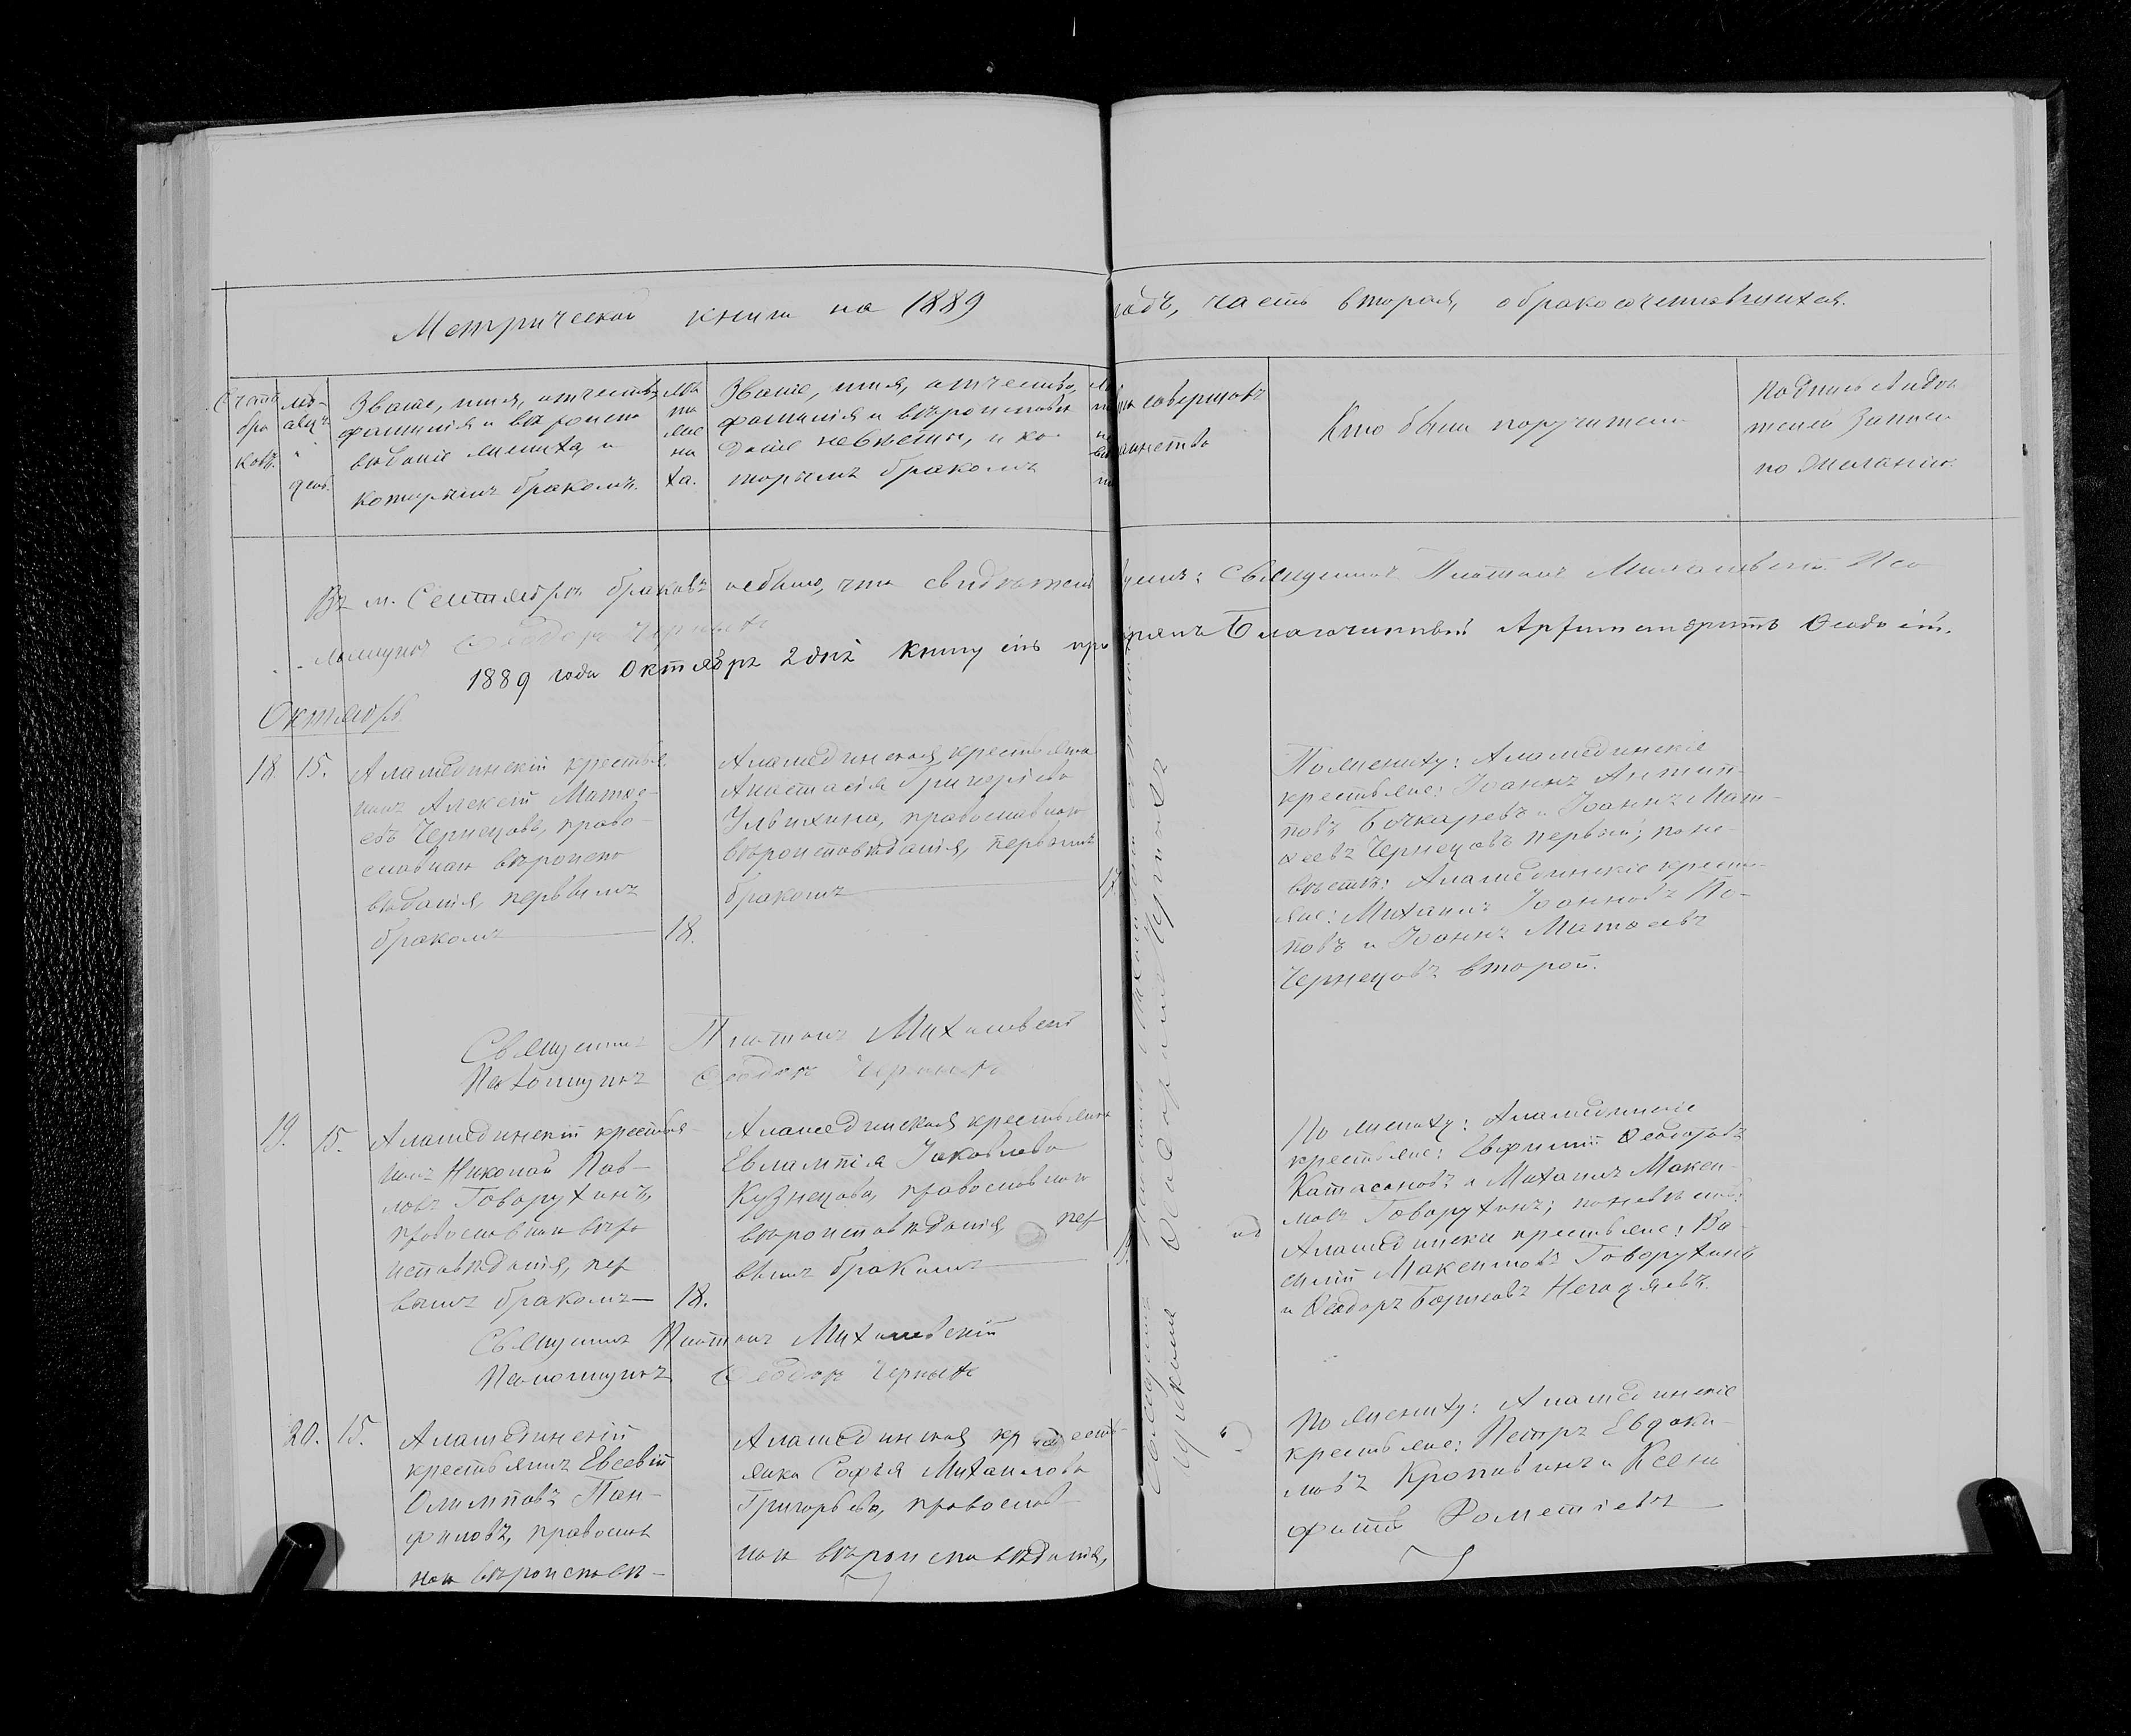 Метрической книги на 1889 годъ, часть вторая, о бракосочетавшихся.
Счетъ
бра
ковъ.
Мѣ-
сяцъ
и
день.
Званіе, имя, отчество,
фамилія и вѣроиспо
вѣданіе жениха, и
которымъ бракомъ.
Лѣ
та
же
ни
ха.
Званіе, имя, отчество,
фамилія и вѣроисповѣ
даніе невѣсты, и ко-
торымъ бракомъ
совершалъ
таинство
Кто были поручители
Подпись свидѣ
телей записи
по желанію.
Въ м. Сентябрѣ браковъ небыло, что свидѣтельствуемъ: Священникъ Платонъ Михалевскій. Пса
ломщикъ Ѳеодоръ Черныхъ
1889 года Октября 2 дня книгу сію провѣрялъ Благочинный
Октябрь
18. 15.
Аламединскій крестья
нинъ Алексѣй Матѳе-
евъ Чернецовъ, право-
славнаго вѣроиспо
вѣданія, первымъ
бракомъ
18.
Аламединская крестьянка
Анастасія Григорьева
Улыхина, православнаго
вѣроисповѣданія, первымъ
бракомъ
17.
По жениху: Аламединскіе
крестьяне: Іоаннъ Антип-
повъ Бочкаревъ и Іоаннъ Мат-
ѳеевъ Чернецовъ первый; по не-
вѣстѣ: Аламединскіе кресть-
яне: Михаилъ Іоанновъ По-
повъ и Іоаннъ Матѳеевъ
Чернецовъ второй.
Священникъ Платонъ Михалевскій
Псаломщикъ Ѳеодоръ Черныхъ
19. 15.
Аламединскій крестья-
нинъ Николай Пав-
ловъ Говорухинъ,
православнаго вѣро
исповѣданія, пер
вымъ бракомъ
18.
Аламединская крестьянка
Евлампія Іаковлева
Кузнецова, православнаго
вѣроисповѣданія, пер
вымъ бракомъ
По жениху: Аламединскіе
крестьяне: Евфимій Ѳеодоровъ
Катасоновъ и Михаилъ Макси-
мовъ Говорухинъ; по невѣстѣ:
Аламединскіе крестьяне: Ва-
силій Максимовъ Говорухинъ
и Ѳеодоръ Борисовъ Негодяевъ.
Священникъ Платонъ Михалевскій
Псаломщикъ Ѳеодоръ Черныхъ
20. 15.
Аламединскій
крестьянинъ Евсевій
Олимповъ Пан-
филовъ, православ
наго вѣроисповѣ-
Аламединская кресть-
янка Софья Михаилова
Григорьева, православ-
наго вѣроисповѣданія,
По жениху: Аламединскіе
крестьяне: Петръ Евдоки-
мовъ Кропивинъ и Ксено
фонтъ
Священникъ Платонъ Михалевскій съ псалом
щикомъ Ѳеодоромъ Черныхъ